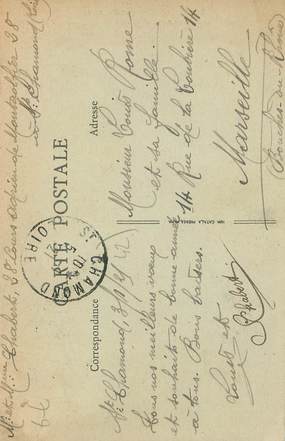 CARTE POSTALE
Correspondance
Adresse
St Chamond, 31/12/22
Tous nos meilleurs vœux
et souhaits de bonne année
à tous. Bons baisers.
Louis et
Chabert
Monsieur Louis Rome
et sa famille
14 Rue de la Loubière 14
Marseille
Bouches-du-Rhône
Mr et Mme Chabert, 28 Cours Adrien de Montgolfier 28
St Chamond
CHAMOND
LOIRE